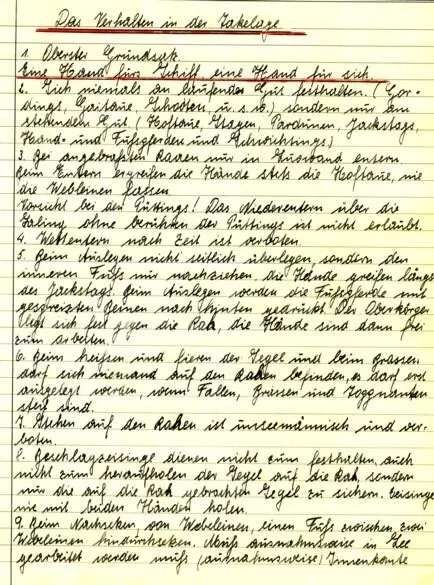 Das Verhalten in der Takelage
1. Oberster Grundsatz.
Eine Hand fürs Schiff, eine Hand für sich.
2. Sich niemals an laufendes Gut festhalten. (Gor-
dings, Gaitaue, Schotten, u.s.w.) sondern nur am
stehenden Gut (Hoftaue, Stagen, Pardunen, Jackstags,
Hand- und Fußpferden und Schwichtings)
3. Bei angebraßten Raaen nur in Luvwand entern
Beim Entern ergreifen die Hände stets die Hoftaue, nie
die Webleinen fassen.
Vorsicht bei den Püttings! Das Niederentern über die
Saling ohne berühren der Püttings ist nicht erlaubt.
4. Wettentern nach Zeit ist verboten.
5. Beim Auslegen nicht seitlich überlegen, sondern den
inneren Fuß nur nachziehen, die Hände greifen längs
des Jackstags. Beim Auslegen werden die Fußpferde mit
gespreizten Beinen nach hinten gedrückt. Der Oberkörper
liegt sich fest gegen die Rah, die Hände sind dann frei
zum arbeiten.
6. Beim heißen und fieren der Segel und beim brassen
darf sich niemand auf den Rahen befinden, es darf erst
ausgelegt werden, wenn Fallen, Brassen und Toppnanten
steif sind.
7. Stehen auf den Rahen ist unseemännisch und ver-
boten.
8. Beschlagzeisinge dienen nicht zum festhalten, auch
nicht zum heraufholen der Segel auf die Rah, sondern
nur die auf die Rah gebrachten Segel zu sichern. Zeisinge
nie mit beiden Händen holen.
9. Beim Nachsehen von Webeleinen, einen Fuß zwischen zwei
Webeleinen hindurchstecken. Muß ausnahmsweise in Lee
gearbeitet werden muß (ausnahmsweise) Innenkante